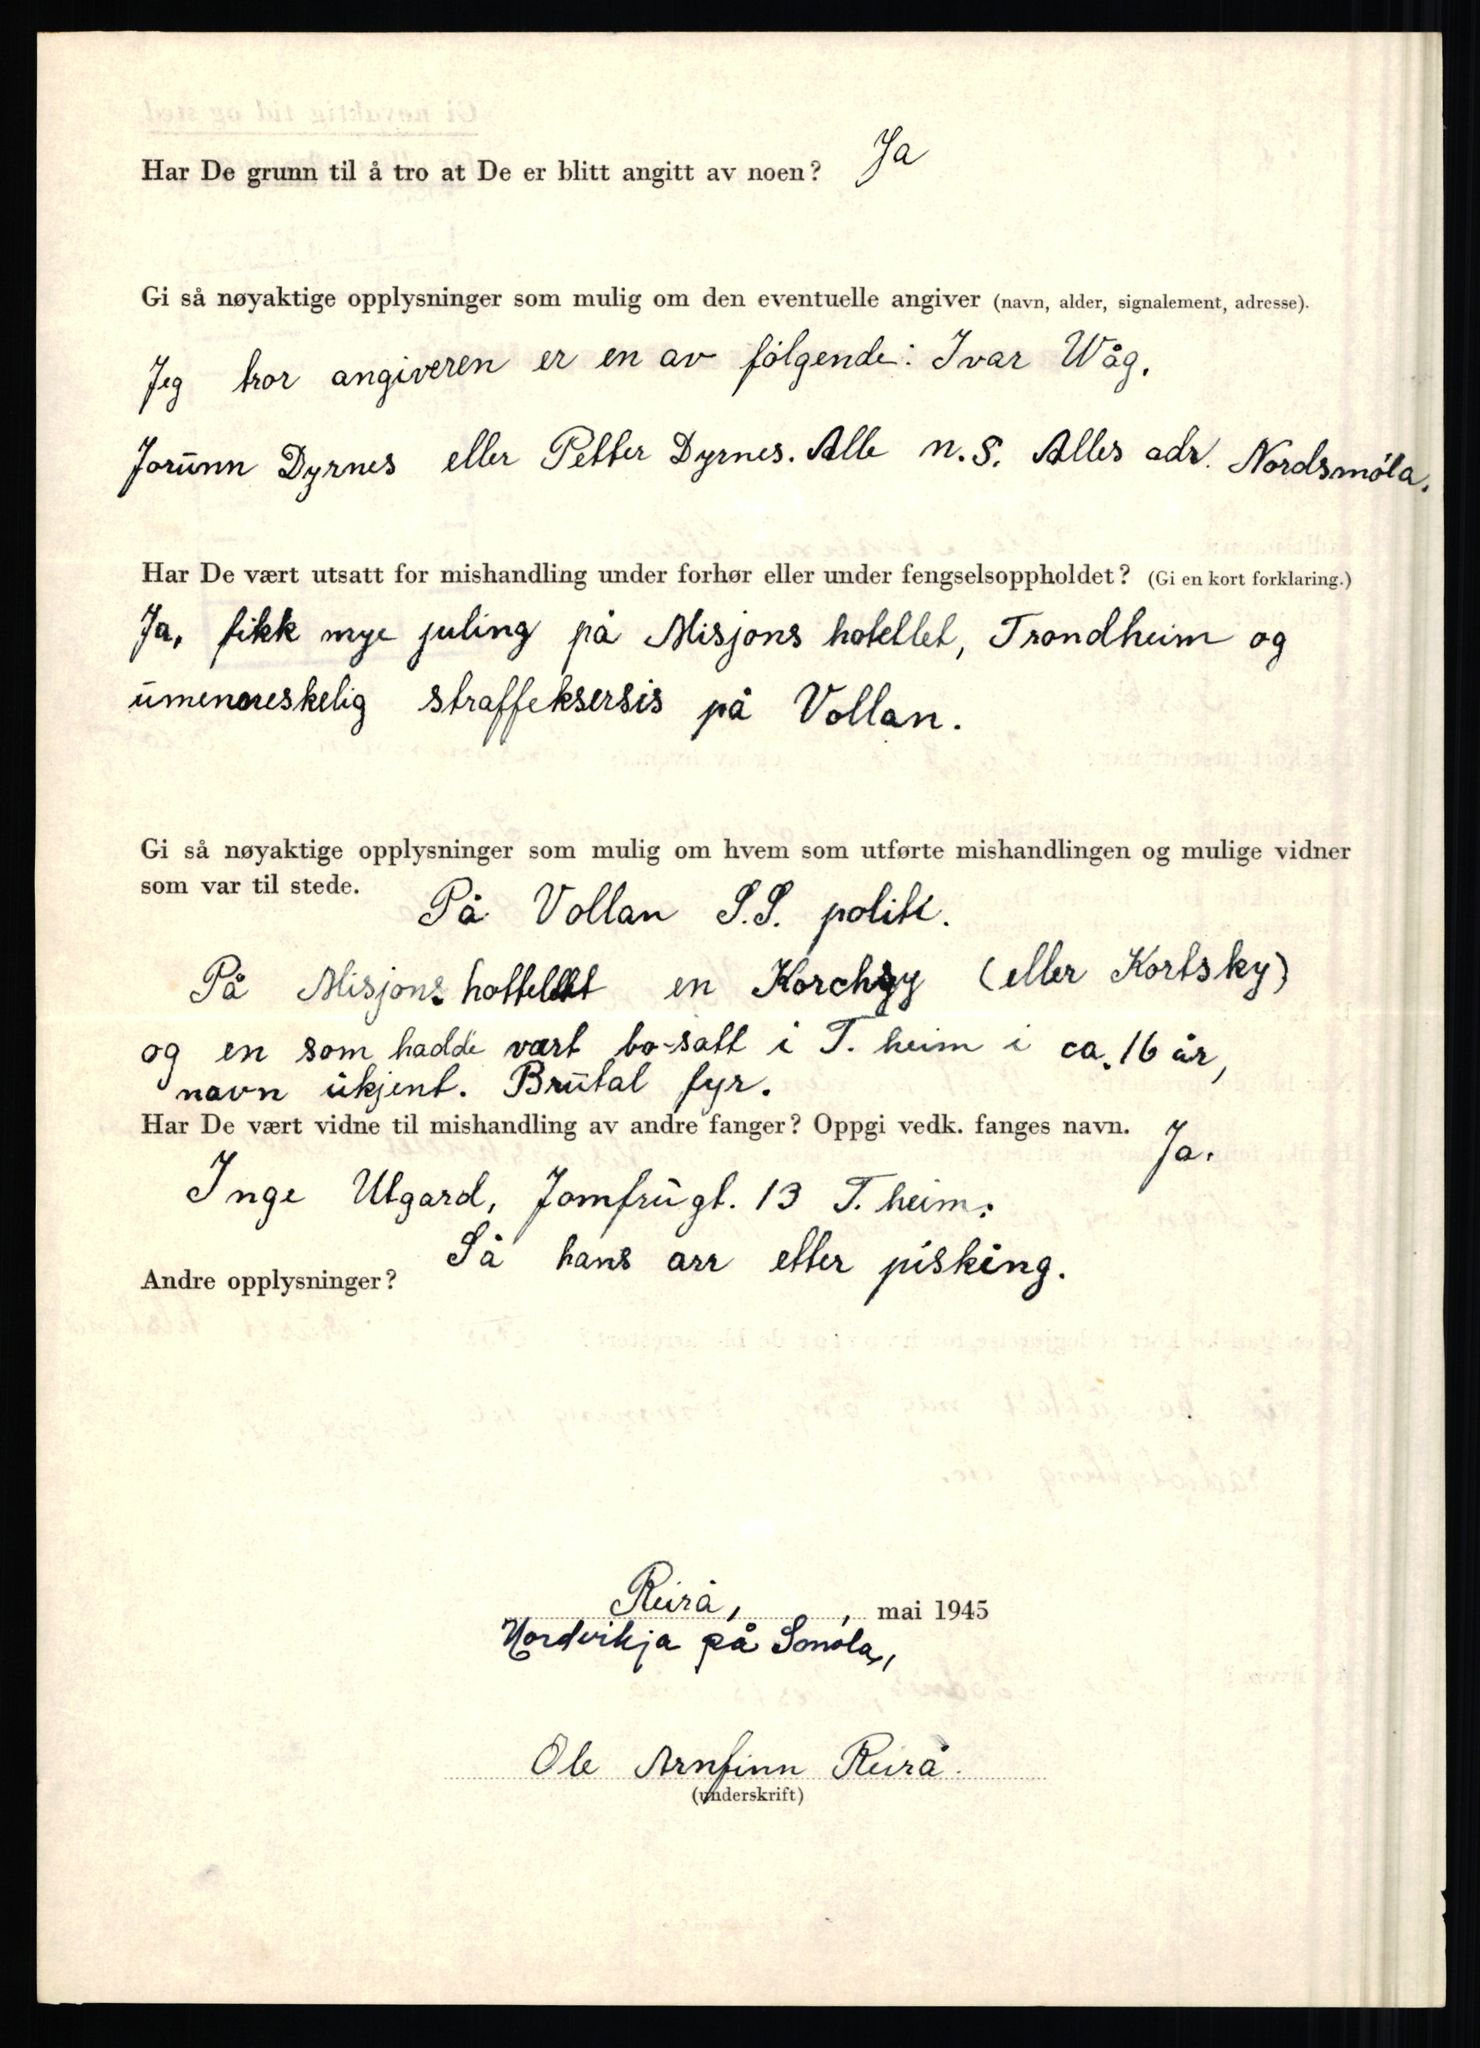 Har De grunn til å tro at De er blitt angitt av noen? Ja
Gi så nøyaktige opplysninger som mulig om den eventuelle angiver (navn, alder, signalement, adresse).
Jeg tror angiveren er en av følgende: Ivar Wåg.
Jorunn Dyrnes eller Petter Dyrnes. Alle N.S. Alles adr. Nordsmøla.
Har De vært utsatt for mishandling under forhør eller under fengselsoppholdet? (Gi en kort forklaring.)
Ja, fikk mye juling på Misjons hotellet, Trondheim og
umenneskelig straffeksersis på Vollan.
Gi så nøyaktige opplysninger som mulig om hvem som utførte mishandlingen og mulige vidner
som var til stede.
På Vollan S.S. politi.
På Misjons hottellet en Korchsy (eller Kortsky)
og en som hadde vært bo-satt i T. heim i ca. 16 år,
navn ukjent. Brutal fyr.
Har De vært vidne til mishandling av andre fanger? Oppgi vedk. fanges navn. Ja.
Inge Utgard, Jomfrugt. 13 T. heim.
Så hans arr etter pisking.
Andre opplysninger?
Reirå, , mai 1945
Nordvikja på Smøla,
Ole Arnfinn Reirå.
(underskrift)